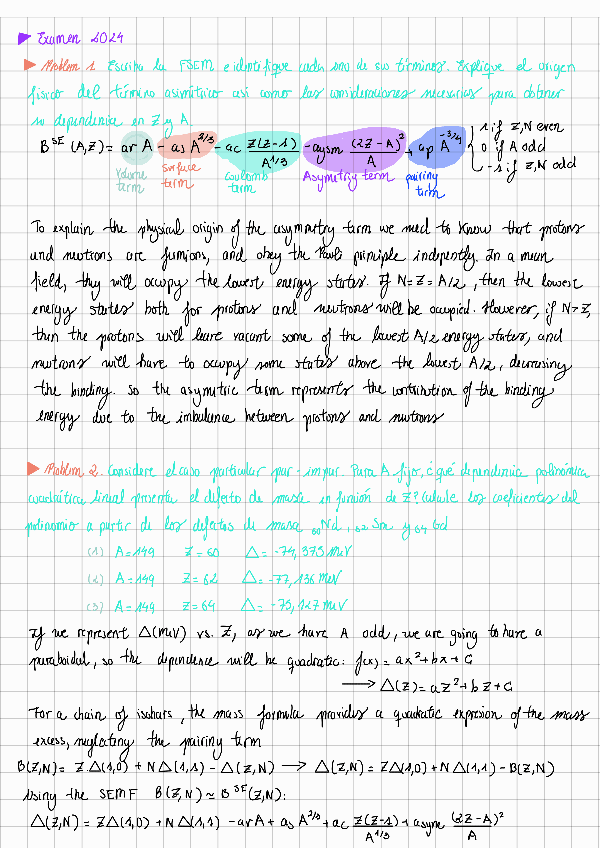 Examen 2024
Problem 1. Escriba la FSEM e identifique cada uno de sus términos. Explique el origen
físico del término asimétrico así como las consideraciones necesarias para obtener
su dependencia en Z y A
B^SE (A,Z) = av A - as A^2/3 - ac Z(Z-1)/A^1/3 - aysm (2Z-A)²/A + ap A^-3/4 { 1 if Z,N even
0 if A odd
-1 if Z,N odd
volume term surface term coulomb term Asymetry term pairing term
To explain the physical origin of the asymmetry term we need to know that protons
and neutrons are fermions, and obey the Pauli principle indepently. In a mean
field, they will occupy the lowest energy states. If N=Z=A/2, then the lowest
energy states both for protons and neutrons will be occupied. However, if N>Z,
then the protons will leave vacant some of the lowest A/2 energy states, and
neutrons will have to occupy some states above the lowest A/2, decreasing
the binding. So the asymetric term represents the contribution of the binding
energy due to the imbalance between protons and neutrons
Problem 2. Considere el caso particular par-impar. Para A fijo, ¿qué dependencia polinómica
cuadrática lineal presenta el defecto de masa en función de Z? Calcule los coeficientes del
polinomio a partir de los defectos de masa 60Nd, 62Sm y 64Gd
(1) A=149 Z=60 Δ=-74,375 MeV
(2) A=149 Z=62 Δ=-77,136 MeV
(3) A=149 Z=64 Δ=-75,127 MeV
If we represent Δ(MeV) vs. Z, as we have A odd, we are going to have a
paraboidal, so the dependence will be quadratic: f(x) = ax²+bx+c
→ Δ(Z)=aZ²+bZ+c
For a chain of isobars, the mass formula provides a quadratic expresion of the mass
excess, neglating the pairing term
B(Z,N)= Z·Δ(1,0) + NΔ(1,1) - Δ(Z,N) → Δ(Z,N) = ZΔ(1,0)+NΔ(1,1)-B(Z,N)
Using the SEMF B(Z,N) ≃ B^SE(Z,N):
Δ(Z,N) = ZΔ(1,0) + NΔ(1,1) - av A + as A^2/3 + ac Z(Z-1)/A^1/3 + asyme (2Z-A)²/A